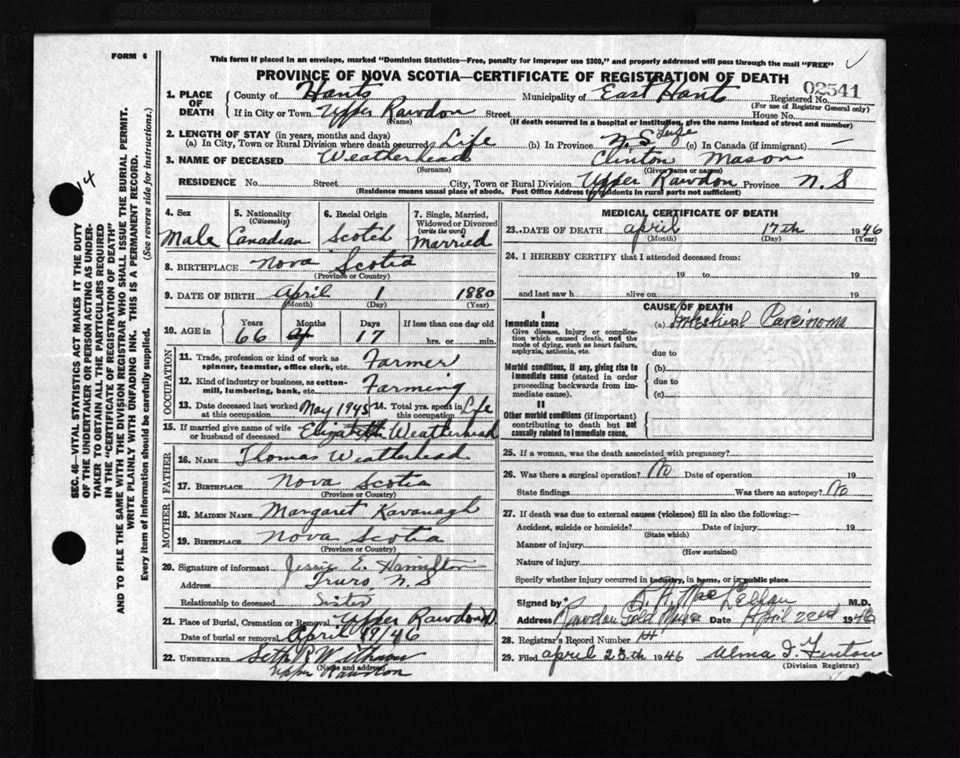 FORM 6
This form if placed in an envelope, marked "Dominion Statistics—Free, penalty for improper use $300," and properly addressed will pass through the mail "FREE"
PROVINCE OF NOVA SCOTIA—CERTIFICATE OF REGISTRATION OF DEATH
02541
1. PLACE OF DEATH
County of Hants Municipality of East Hants Registered No.
(For use of Registrar General only)
If in City or Town Upper Rawdon Street House No.
(Name) (If death occurred in a hospital or institution, give the name instead of street and number)
2. LENGTH OF STAY (in years, months and days)
(a) In City, Town or Rural Division where death occurred Life (b) In Province N.S Life (c) In Canada (if immigrant) —
3. NAME OF DECEASED Weatherhead Clinton Mason
(Surname) (Given name or names)
RESIDENCE No. Street City, Town or Rural Division Upper Rawdon Province N.S
(Residence means usual place of abode. Post Office Address for residents in rural parts not sufficient)
4. Sex Male
5. Nationality (Citizenship) Canadian
6. Racial Origin Scotch
7. Single, Married, Widowed or Divorced (write the word) Married
8. BIRTHPLACE Nova Scotia
(Province or Country)
9. DATE OF BIRTH April 1 1880
(Month) (Day) (Year)
10. AGE in Years Months Days If less than one day old
66 17 hrs. or min.
OCCUPATION
11. Trade, profession or kind of work as spinner, teamster, office clerk, etc. Farmer
12. Kind of industry or business, as cotton-mill, lumbering, bank, etc. Farming
13. Date deceased last worked at this occupation May 1945 14. Total yrs. spent in this occupation Life
15. If married give name of wife or husband of deceased Elizabeth Weatherhead
FATHER
16. NAME Thomas Weatherhead
17. BIRTHPLACE Nova Scotia
(Province or Country)
MOTHER
18. MAIDEN NAME Margaret Kavanagh
19. BIRTHPLACE Nova Scotia
(Province or Country)
20. Signature of informant Jessie E. Hamilton
Address Truro N.S
Relationship to deceased Sister
21. Place of Burial, Cremation or Removal Upper Rawdon
Date of burial or removal April 19/46
22. UNDERTAKER Seth R
(Name and address)
Upper Rawdon
MEDICAL CERTIFICATE OF DEATH
23. DATE OF DEATH April 17th 1946
(Month) (Day) (Year)
24. I HEREBY CERTIFY that I attended deceased from:
19 to 19
and last saw h alive on 19
CAUSE OF DEATH
I
Immediate cause (a) Intestinal Carcinoma
Give disease, injury or complication which caused death, not the mode of dying, such as heart failure, asphyxia, asthenia, etc.
due to
Morbid conditions, if any, giving rise to immediate cause (stated in order proceeding backwards from immediate cause).
(b)
due to
(c)
II
Other morbid conditions (if important) contributing to death but not causally related to immediate cause.
25. If a woman, was the death associated with pregnancy?
26. Was there a surgical operation? No Date of operation 19
State findings Was there an autopsy? No
27. If death was due to external causes (violence) fill in also the following:—
Accident, suicide or homicide? Date of injury 19
(State which)
Manner of injury
(How sustained)
Nature of injury
Specify whether injury occurred in industry, in home, or in public place
Signed by M.D.
Address Rawdon Gold Mines Date April 22nd 1946
28. Registrar's Record Number 14
29. Filed April 25th 1946 Alma
(Division Registrar)
SEC. 46—VITAL STATISTICS ACT MAKES IT THE DUTY
OF THE UNDERTAKER OR PERSON ACTING AS UNDER-
TAKER TO OBTAIN ALL THE PARTICULARS REQUIRED
IN THE "CERTIFICATE OF REGISTRATION OF DEATH"
AND TO FILE THE SAME WITH THE DIVISION REGISTRAR WHO SHALL ISSUE THE BURIAL PERMIT.
WRITE PLAINLY WITH UNFADING INK. THIS IS A PERMANENT RECORD.
Every item of information should be carefully supplied. (See reverse side for instructions.)
14